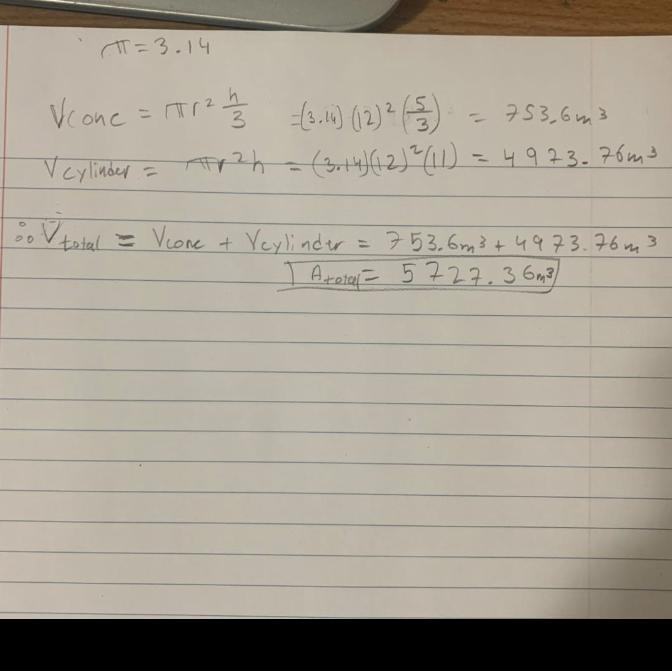 π = 3.14
Vcone = πr² h/3 =(3.14)(12)²(5/3) = 753.6m³
Vcylinder = πr²h = (3.14)(12)²(11) = 4973.76m³
∴ Vtotal = Vcone + Vcylinder = 753.6m³ + 4973.76m³
Atotal = 5727.36m³